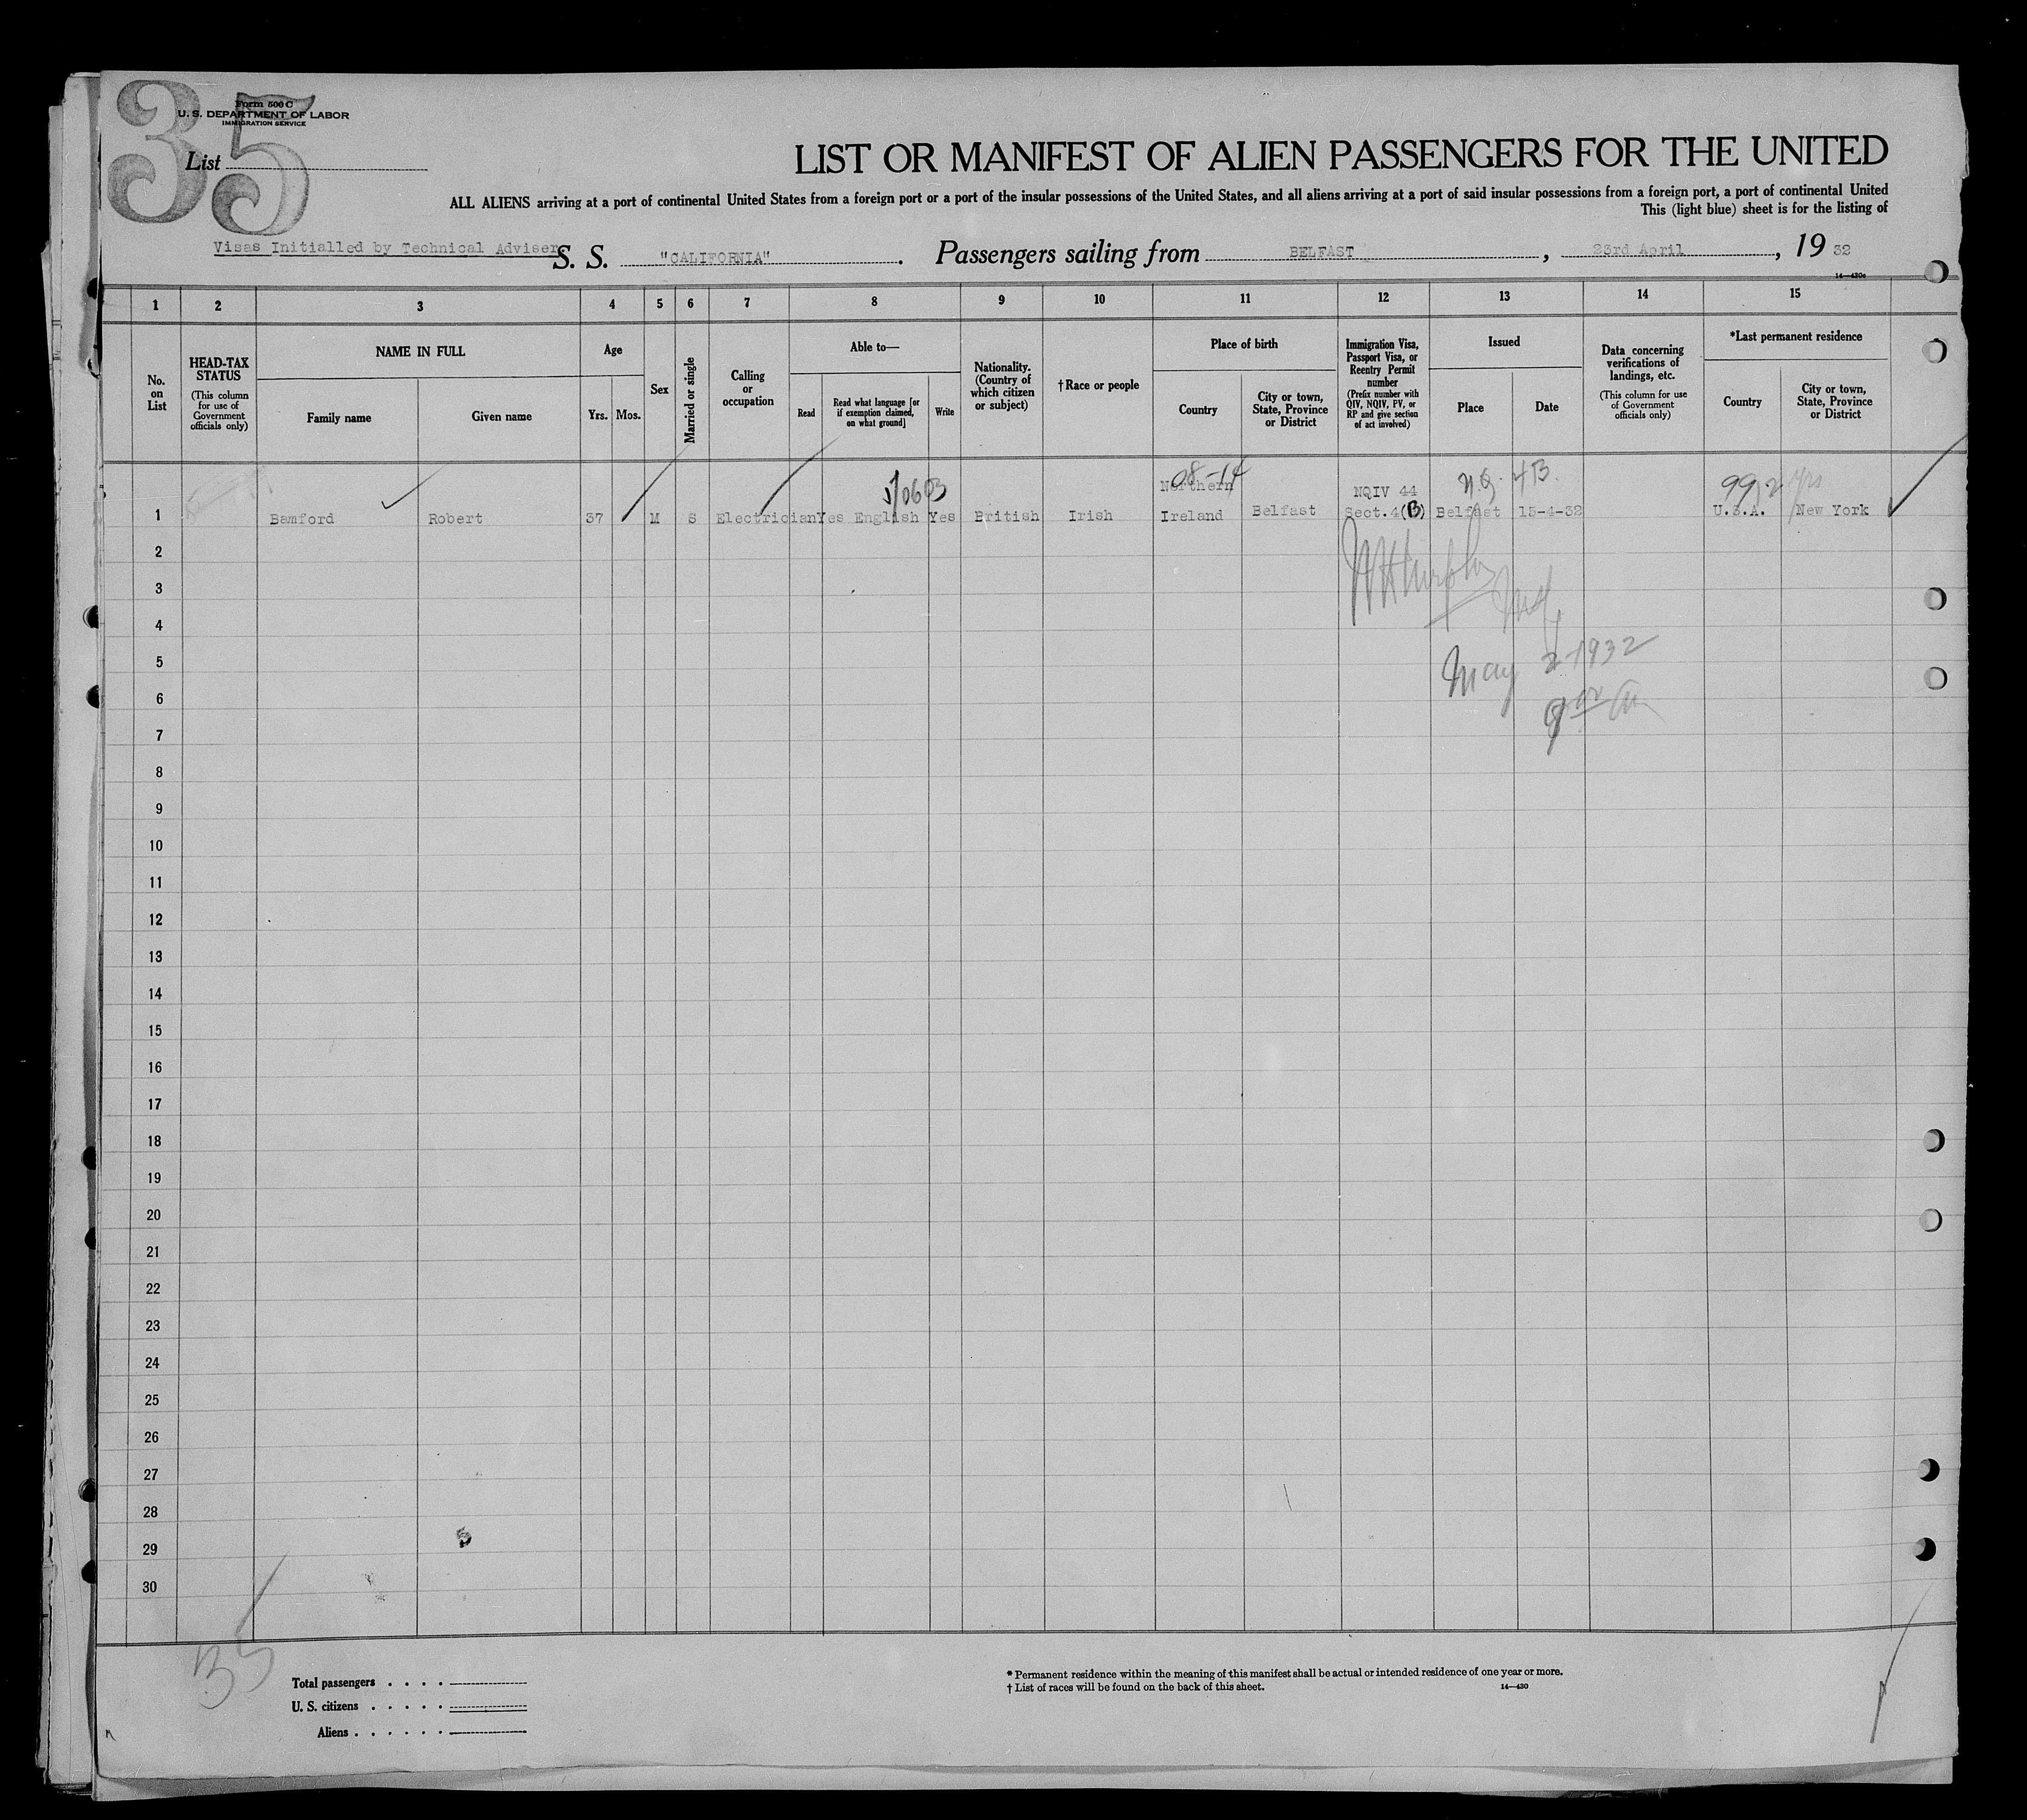 35
Form 500 C
U. S. DEPARTMENT OF LABOR
IMMIGRATION SERVICE
List
LIST OR MANIFEST OF ALIEN PASSENGERS FOR THE UNITED
ALL ALIENS arriving at a port of continental United States from a foreign port or a port of the insular possessions of the United States, and all aliens arriving at a port of said insular possessions from a foreign port, a port of continental United
This (light blue) sheet is for the listing of
Visas Initialled by Technical Adviser. S. S. "CALIFORNIA". Passengers sailing from BELFAST, 23rd April, 19 32
14—430c
1 2 3 4 5 6 7 8 9 10 11 12 13 14 15
No. on List
HEAD-TAX STATUS
(This column for use of Government officials only)
NAME IN FULL
Family name
Given name
Age
Yrs. Mos.
Sex
Married or single
Calling or occupation
Able to—
Read
Read what language [or if exemption claimed, on what ground]
Write
Nationality. (Country of which citizen or subject)
†Race or people
Place of birth
Country
City or town, State, Province or District
Immigration Visa, Passport Visa, or Reentry Permit number
(Prefix number with QIV, NQIV, PV, or RP and give section of act involved)
Issued
Place
Date
Data concerning verifications of landings, etc.
(This column for use of Government officials only)
*Last permanent residence
Country
City or town, State, Province or District
08-14 4B. 99/2 yrs
Northern NQIV 44
1 Bamford Robert 37 M S Electrician Yes English Yes British Irish Ireland Belfast Sect.4(B) Belfast 15-4-32 U.S.A. New York
2
3
4
5
May 2-1932
6
7
8
9
10
11
12
13
14
15
16
17
18
19
20
21
22
23
24
25
26
27
28
29
30
35
Total passengers . . . .
U. S. citizens . . . . .
Aliens . . . . . .
* Permanent residence within the meaning of this manifest shall be actual or intended residence of one year or more.
† List of races will be found on the back of this sheet.
14—430